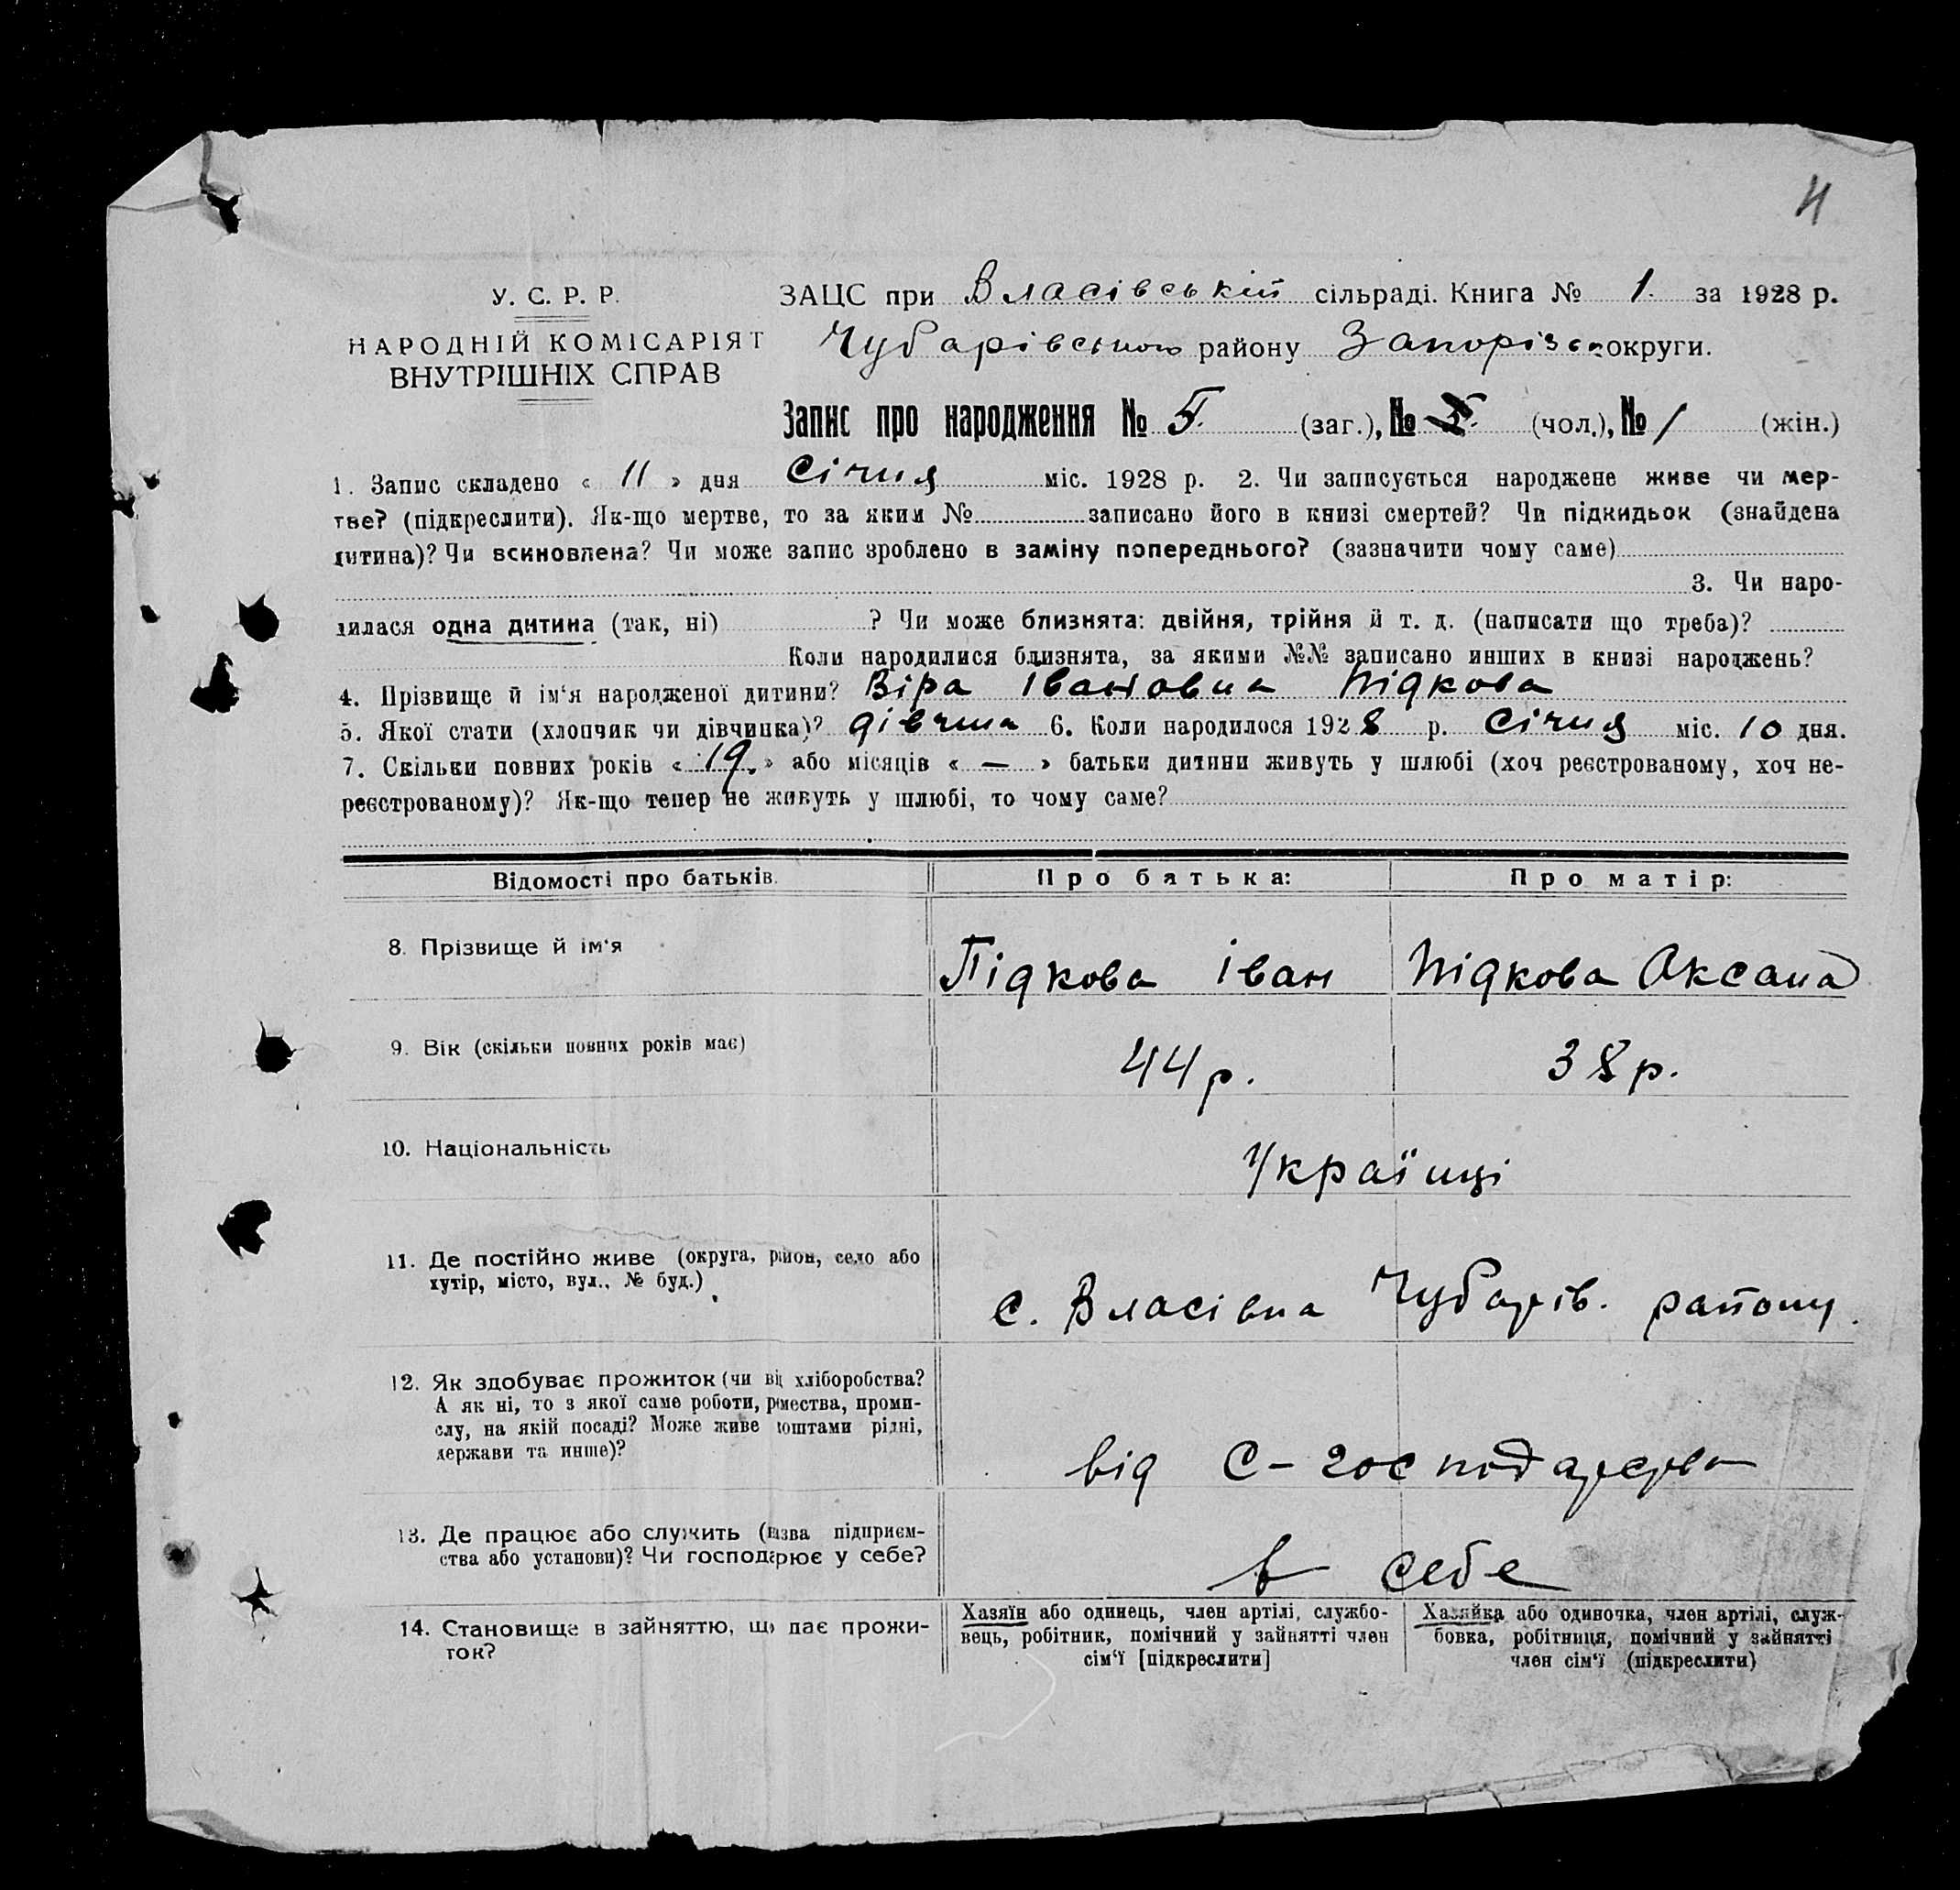 4
У. С. Р. Р.
НАРОДНІЙ КОМІСАРІЯТ
ВНУТРІШНІХ СПРАВ
ЗАЦС при Власівській сільраді. Книга № 1. за 1928 р.
Чубарівського району Запорізьк округи.
Запис про народження № 5. (заг.), № (чол.), № 1 (жін.)
1. Запис складено « 11 » дня Січня міс. 1928 р. 2. Чи записується народжене живе чи мер-
тве? (підкреслити). Як-що мертве, то за яким № записано його в книзі смертей? Чи підкидьок (знайдена
дитина)? Чи всиновлена? Чи може запис зроблено в заміну попереднього? (зазначити чому саме)
3. Чи наро-
дилася одна дитина (так, ні) ? Чи може близнята: двійня, трійня й т. д. (написати що треба)?
Коли народилися близнята, за якими №№ записано инших в книзі народжень?
4. Прізвище й ім‘я народженої дитини? Віра Івановна Підкова
5. Якої стати (хлопчик чи дівчинка)? дівчина 6. Коли народилося 1928 р. Січня міс. 10 дня.
7. Скільки повних років « 19. » або місяців « — » батьки дитини живуть у шлюбі (хоч реєстрованому, хоч не-
реєстрованому)? Як-що тепер не живуть у шлюбі, то чому саме?
Відомості про батьків. Про батька: Про матір:
8. Прізвище й ім‘я Підкова Іван Підкова Оксана
9. Вік (скільки повних років має) 44 р. 38 р.
10. Національність Українці
11. Де постійно живе (округа, район, село або
хутір, місто, вул., № буд.)
с. Власівка Чубарів. району.
12. Як здобуває прожиток (чи від хліборобства?
А як ні, то з якої саме роботи, ремества, проми-
слу, на якій посаді? Може живе коштами рідні,
держави та инше)?
від С-господарства
13. Де працює або служить (назва підприєм-
ства або установи)? Чи господарює у себе?
в себе
14. Становище в зайняттю, що дає прожи-
ток?
Хазяїн або одинець, член артілі, службо-
вець, робітник, помічний у зайнятті член
сім‘ї [підкреслити]
Хазяйка або одиночка, член артілі, служ-
бовка, робітниця, помічний у зайнятті
член сім‘ї (підкреслити)